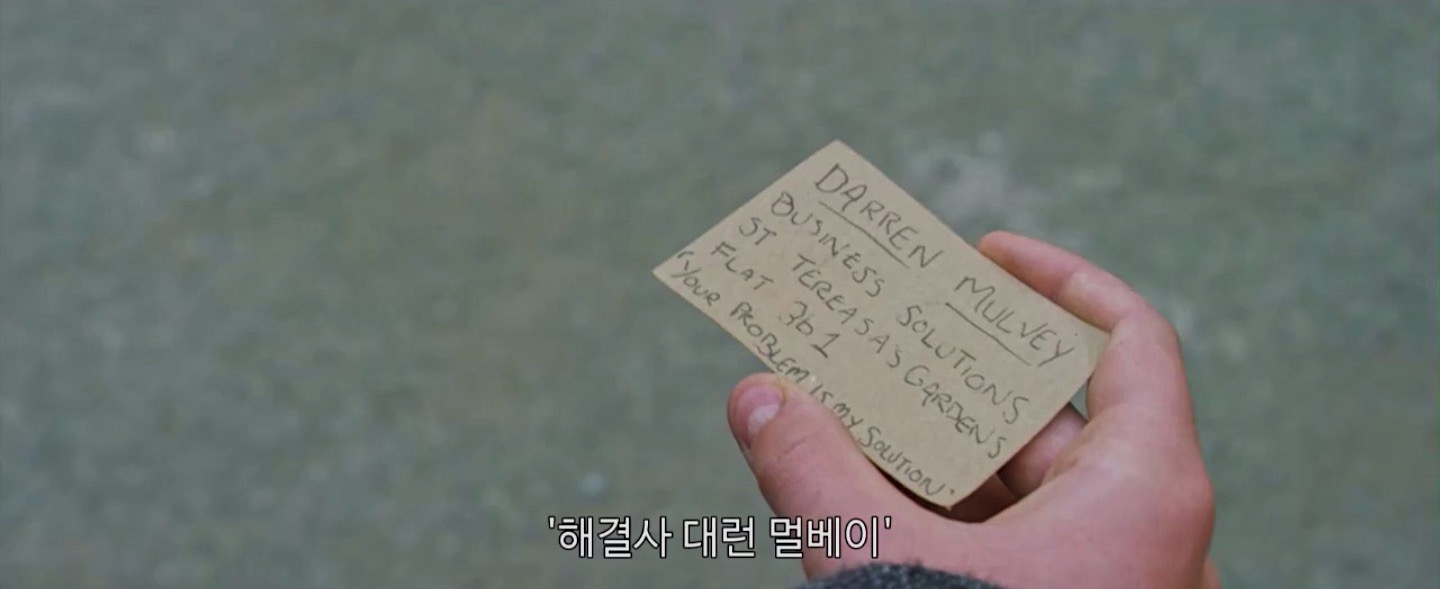 DARREN MULVEY
BUSINESS SOLUTIONS
ST TEREASA'S GARDENS
FLAT 3b1
'YOUR PROBLEM IS MY SOLUTION'
'해결사 대런 멀베이'